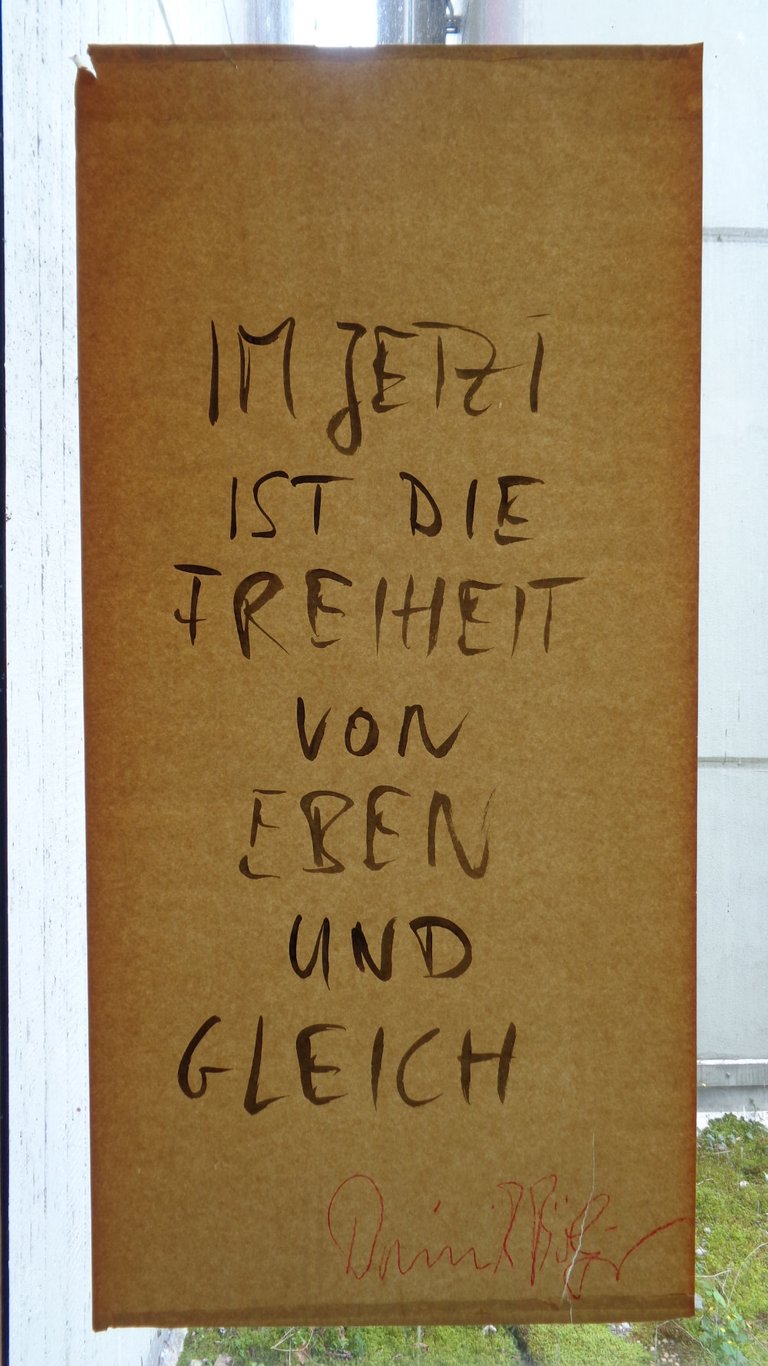 IM JETZT
IST DIE
FREIHEIT
VON
EBEN
UND
GLEICH
Dominik